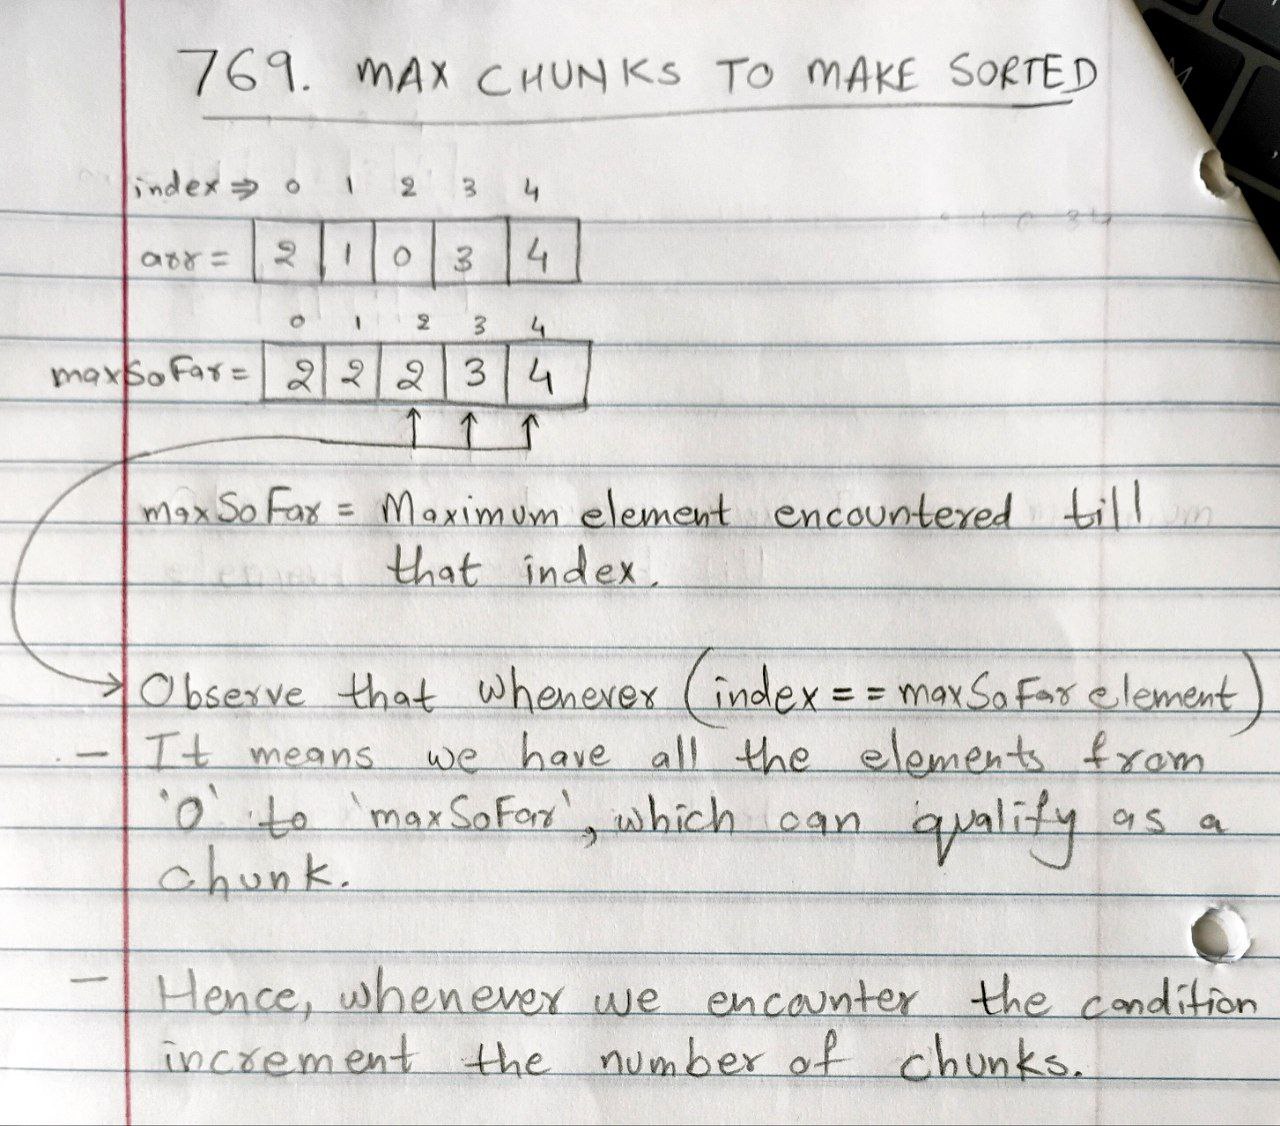 769. MAX CHUNKS TO MAKE SORTED
index ⇒ 0 1 2 3 4
arr = 2 1 0 3 4
0 1 2 3 4
maxSoFar = 2 2 2 3 4
maxSoFar = Maximum element encountered till
that index.
Observe that whenever (index == maxSoFar element)
- It means we have all the elements from
'0' to 'maxSoFar', which can qualify as a
chunk.
- Hence, whenever we encounter the condition
increment the number of chunks.